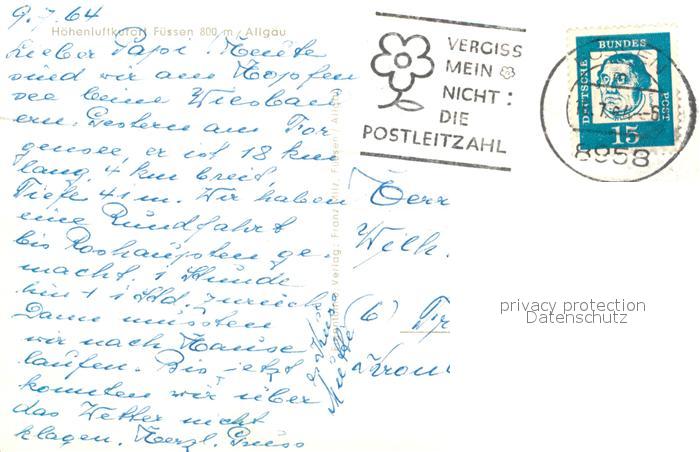 9.7.64
Höhenluftkurort Füssen 800 m / Allgäu
Lieber Papi! Heute
sind wir am Hopfen
see beim Wiesbau
ern. Gestern am For
gensee, er ist 18 km
lang, 4 km breit,
Tiefe 41 m. Wir haben
eine Rundfahrt
bis Roshaupten ge-
macht. 1 Stunde
hin + 1 Std. zurück
Dann mussten
wir nach Hause
laufen. Bis jetzt
konnten wir über
das Wetter nicht
klagen. Herzl. Gruss
Mutti
Verlag: Franz Milz, Füssen, Allgäu
VERGISS
MEIN
NICHT:
DIE
POSTLEITZAHL
DEUTSCHE BUNDES POST
15
8958
Herr
Wilh.
(6)
privacy protection
Datenschutz